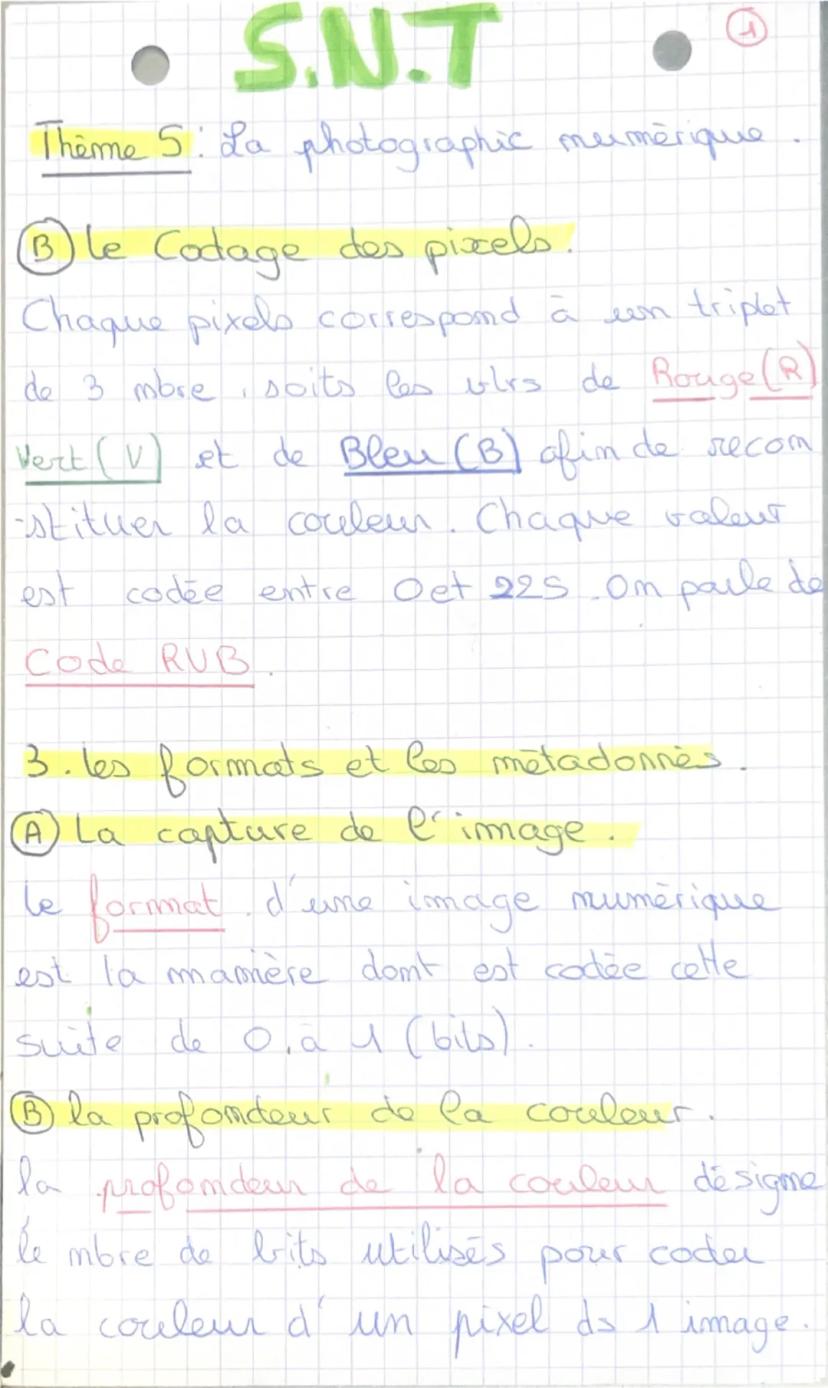 S.N.T
1
Thème 5 : La photographie numérique.
B le Codage des pixels.
Chaque pixels correspond à un triplet
de 3 nbre, soits les vlrs de Rouge (R)
Vert (V) et de Bleu (B) afin de recon
-stituer la couleur. Chaque valeur
est codée entre 0 et 225. On parle de
Code RVB.
3. les formats et les métadonnés.
A La capture de l'image.
le format d'une image numérique
est la manière dont est codée cette
suite de 0, à 1 (bits).
B la profondeur de la couleur.
la profondeur de la couleur désigne
le nbre de bits utilisés pour coder
la couleur d'un pixel ds 1 image.